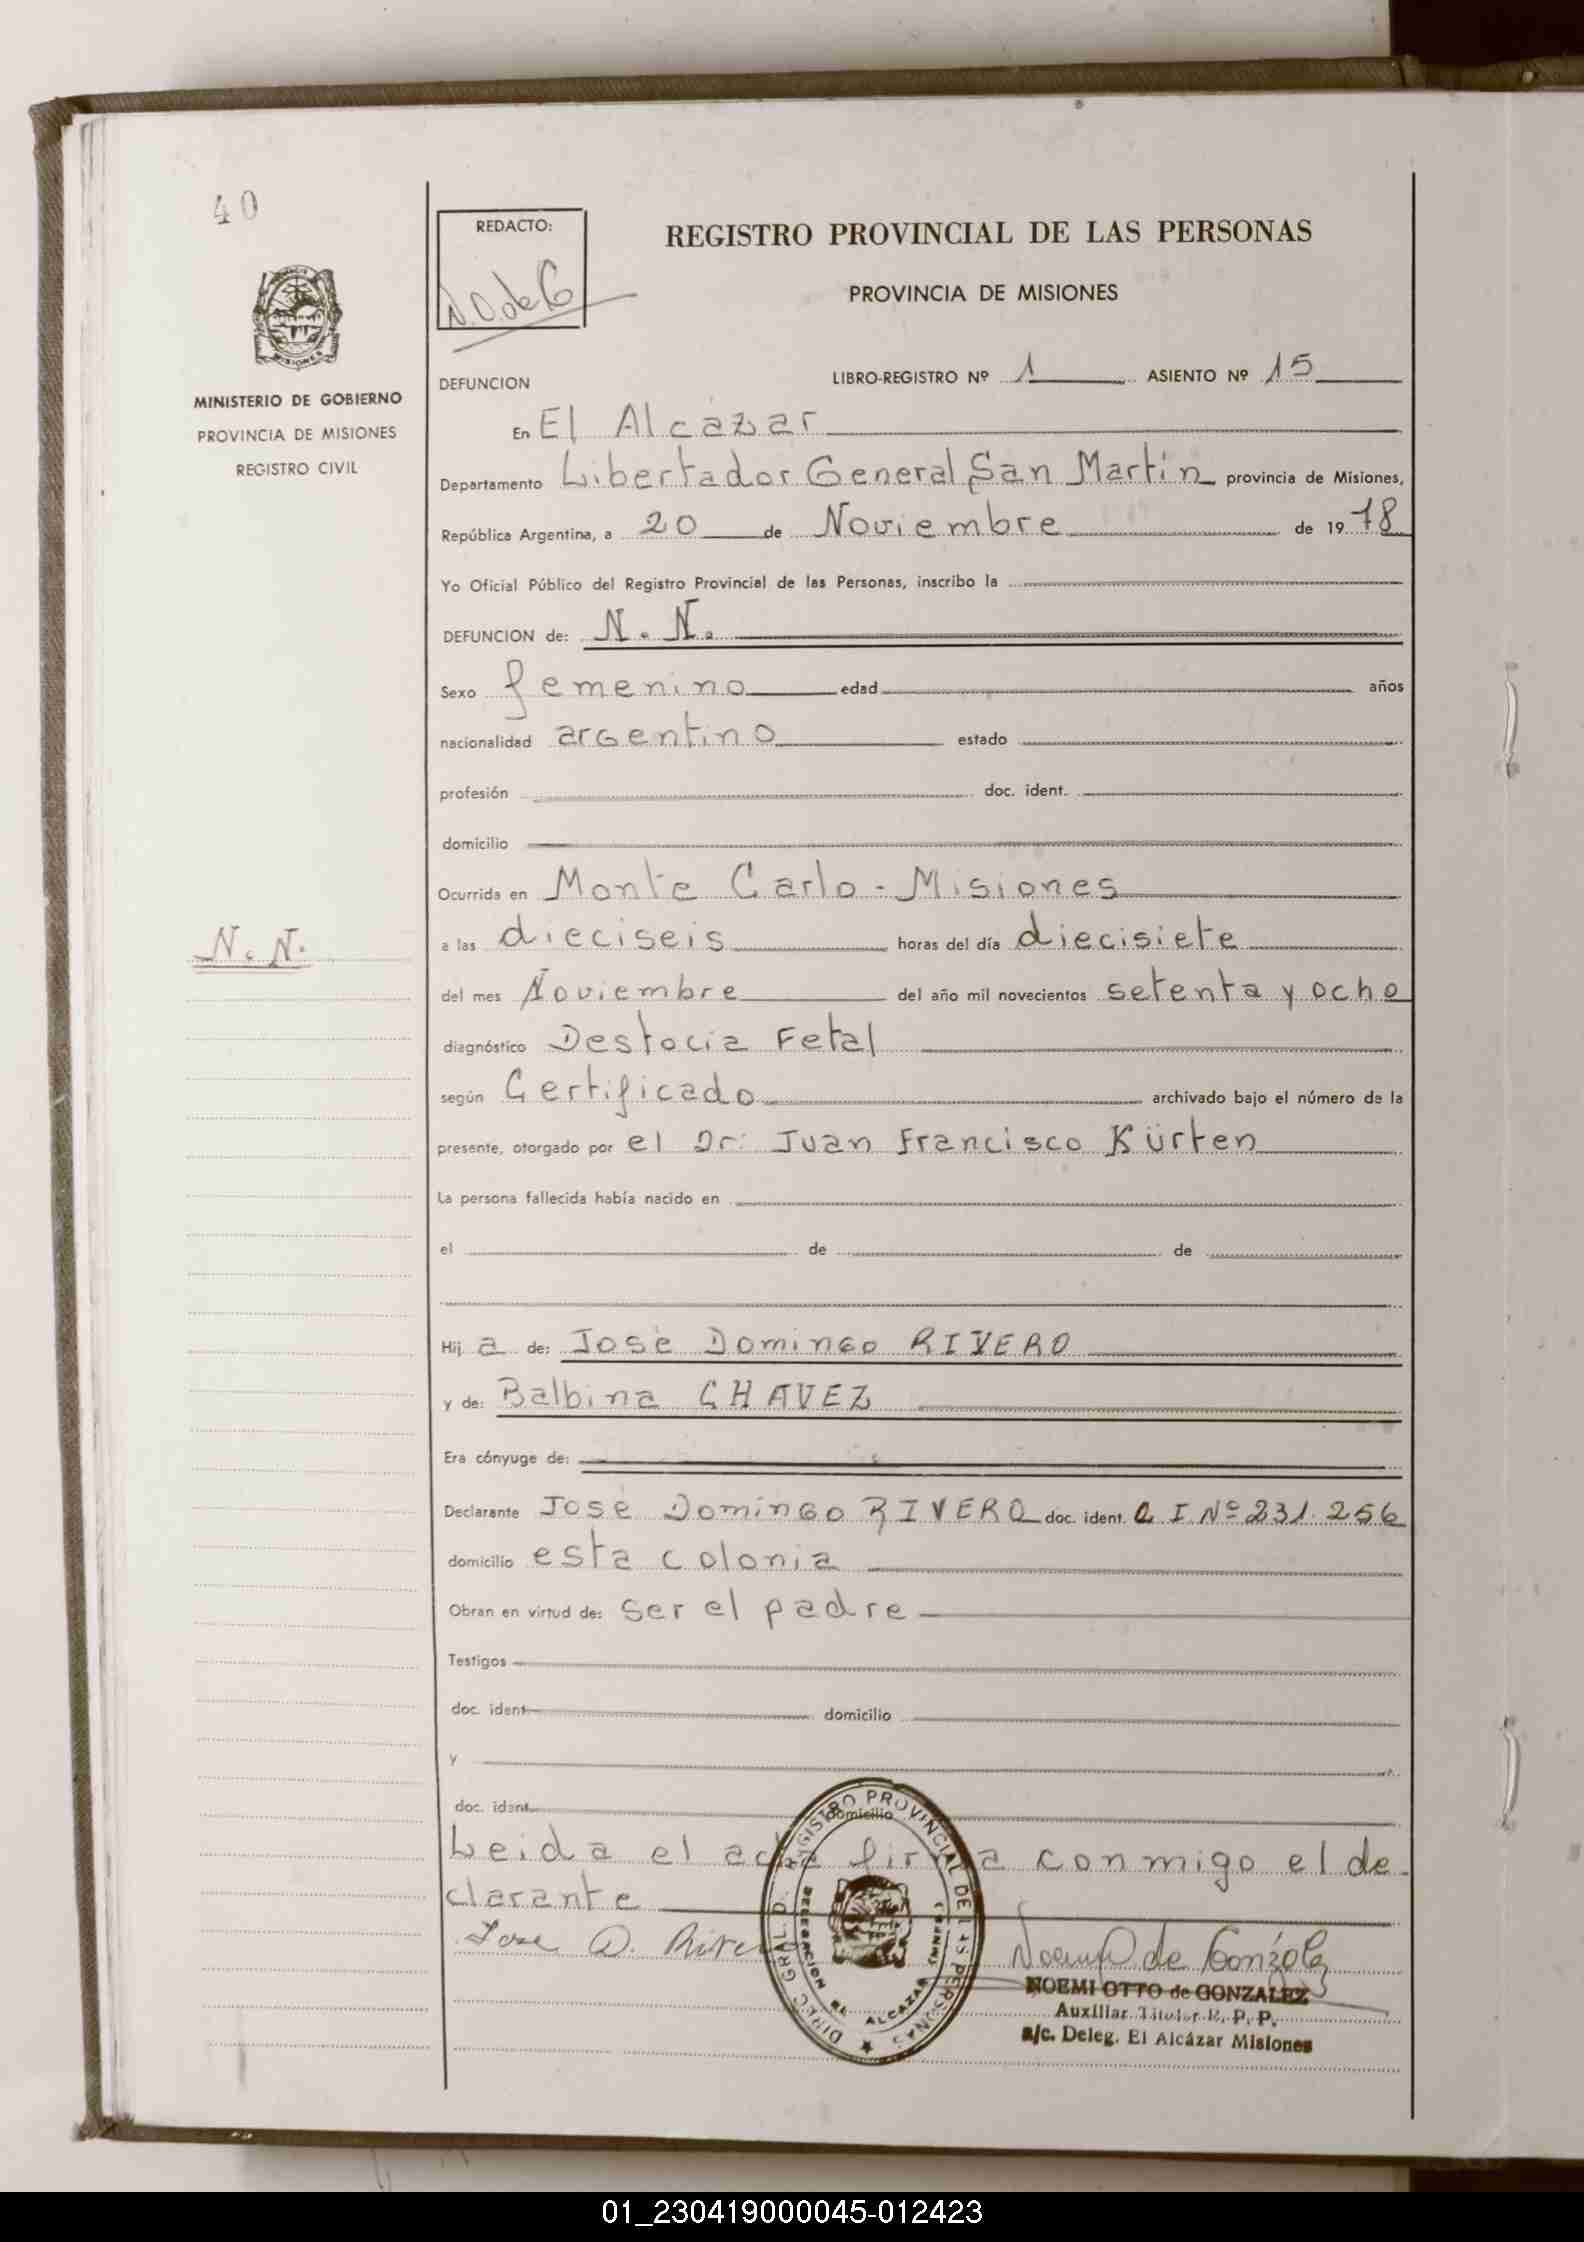 40
REDACTO:
N.O. de G
REGISTRO PROVINCIAL DE LAS PERSONAS
PROVINCIA DE MISIONES
MISIONES
MINISTERIO DE GOBIERNO
PROVINCIA DE MISIONES
REGISTRO CIVIL
DEFUNCION LIBRO-REGISTRO Nº 1 ASIENTO Nº 15
En El Alcázar
Departamento Libertador General San Martín provincia de Misiones,
República Argentina, a 20 de Noviembre de 19 78
Yo Oficial Público del Registro Provincial de las Personas, inscribo la
DEFUNCION de: N. N.
Sexo femenino edad años
nacionalidad argentino estado
profesión doc. ident.
domicilio
Ocurrida en Monte Carlo - Misiones
N. N.
a las dieciseis horas del día diecisiete
del mes Noviembre del año mil novecientos setenta y ocho
diagnóstico Destocia Fetal
según Certificado archivado bajo el número de la
presente, otorgado por el Dr: Juan Francisco Kürten
La persona fallecida había nacido en
el de de
Hij a de: José Domingo RIVERO
y de: Balbina CHAVEZ
Era cónyuge de:
Declarante José Domingo RIVERO doc. ident. C. I. Nº 231.256
domicilio esta colonia
Obran en virtud de: ser el padre
Testigos
doc. ident domicilio
y
doc. ident domicilio
Leida el acta firma conmigo el de
clarante
Jose D. Rivero
Noemi O de Gonzalez
DIREC. GRAL. D. REGISTRO PROVINCIAL DE LAS PERSONAS
DELEGACION EL ALCAZAR
NOEMI OTTO de GONZALEZ
Auxiliar Titular R. P. P.
a/c. Deleg. El Alcázar Misiones
01_230419000045-012423